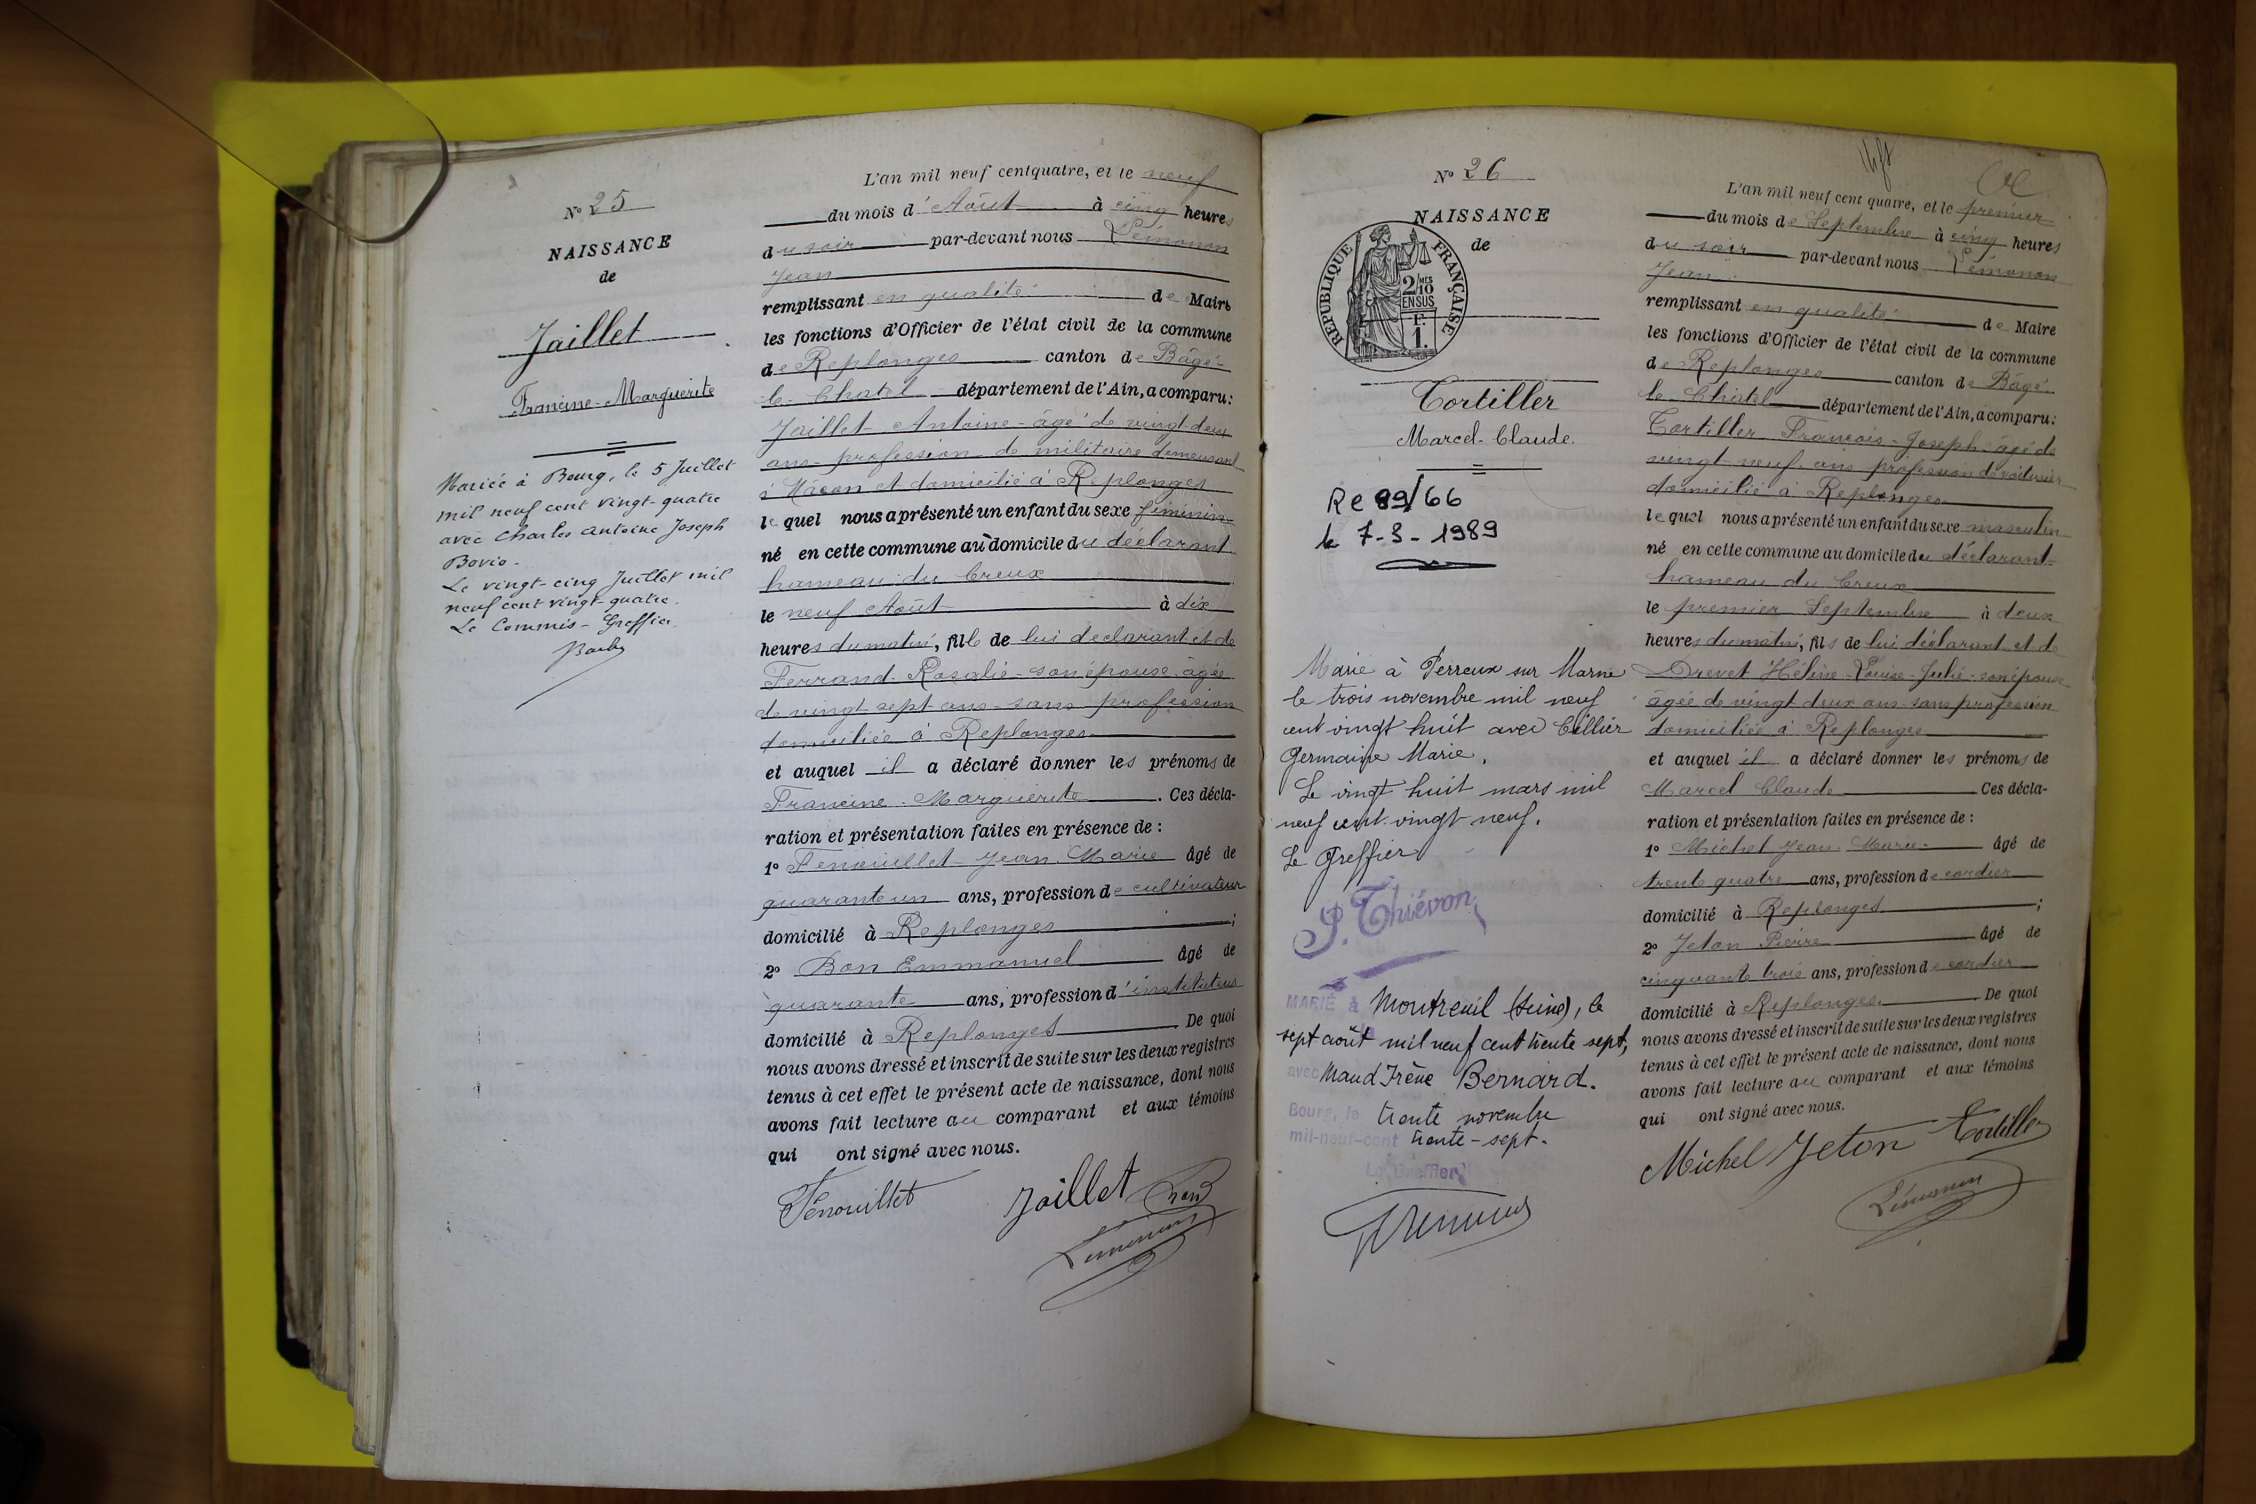 N° 25
NAISSANCE
de
Jaillet
Francine-Marguerite
Mariée à Bourg, le 5 Juillet
mil neuf cent vingt-quatre
avec Charles Antoine Joseph
Bovio.
Le vingt-cinq Juillet mil
neuf cent vingt-quatre.
Le Commis-Greffier
L'an mil neuf centquatre, et le neuf
du mois d'Août à cinq heures
du soir par-devant nous Lémonon
Jean
remplissant en qualité de Maire
les fonctions d'Officier de l'état civil de la commune
de Replonges canton de Bâgé-
le-Chatel département de l'Ain, a comparu:
Jaillet Antoine-âgé de vingt deux
ans-profession de militaire demeurant
à Mâcon et domicilié à Replonges
lequel nous a présenté un enfant du sexe féminin
né en cette commune au domicile du déclarant
hameau du Creux
le neuf Août à dix
heures du matin, fille de lui déclarant et de
Ferrand Rosalie-son épouse-âgée
de vingt sept ans-sans profession
domiciliée à Replonges
et auquel il a déclaré donner les prénoms de
Francine-Marguerite. Ces décla-
ration et présentation faites en présence de :
1° Fenouillet-Jean Marie âgé de
quarante un ans, profession de cultivateur
domicilié à Replonges ;
2° Bon Emmanuel âgé de
quarante ans, profession d'instituteur
domicilié à Replonges. De quoi
nous avons dressé et inscrit de suite sur les deux registres
tenus à cet effet le présent acte de naissance, dont nous
avons fait lecture au comparant et aux témoins
qui ont signé avec nous.
Fenouillet Jaillet Bon
Lémonon
N° 26
NAISSANCE
de
REPUBLIQUE FRANÇAISE
2/10 MES
EN SUS
F.
1.
Tortiller
Marcel-Claude.
Re 89/66
le 7-3-1989
Marié à Perreux sur Marne
le trois novembre mil neuf
cent vingt huit avec Cellier
Germaine Marie.
Le vingt huit mars mil
neuf cent vingt neuf.
Le Greffier
P. Thiévon
MARIÉ à Montreuil (Seine), le
sept août mil neuf cent trente sept,
avec Maud Irène Bernard.
Bourg, le trente novembre
mil-neuf-cent trente-sept.
Le Greffier
L'an mil neuf cent quatre, et le premier
du mois de Septembre à cinq heures
du soir par-devant nous Lémonon
Jean
remplissant en qualité de Maire
les fonctions d'Officier de l'état civil de la commune
de Replonges canton de Bâgé
le-Chatel département de l'Ain, a comparu:
Tortiller François-Joseph-âgé de
vingt neuf ans profession de
domicilié à Replonges
lequel nous a présenté un enfant du sexe masculin
né en cette commune au domicile du déclarant
hameau du Creux
le premier Septembre à deux
heures du matin, fils de lui déclarant et de
Drevet Hélène-Louise-Julie-son épouse
âgée de vingt deux ans sans profession
domiciliée à Replonges
et auquel il a déclaré donner les prénoms de
Marcel Claude Ces décla-
ration et présentation faites en présence de :
1° Michel Jean Marie âgé de
trente quatre ans, profession de cordier
domicilié à Replonges ;
2° Jeton Pierre âgé de
cinquante trois ans, profession de cordier
domicilié à Replonges. De quoi
nous avons dressé et inscrit de suite sur les deux registres
tenus à cet effet le présent acte de naissance, dont nous
avons fait lecture au comparant et aux témoins
qui ont signé avec nous.
Michel Jeton Tortiller
Lémonon